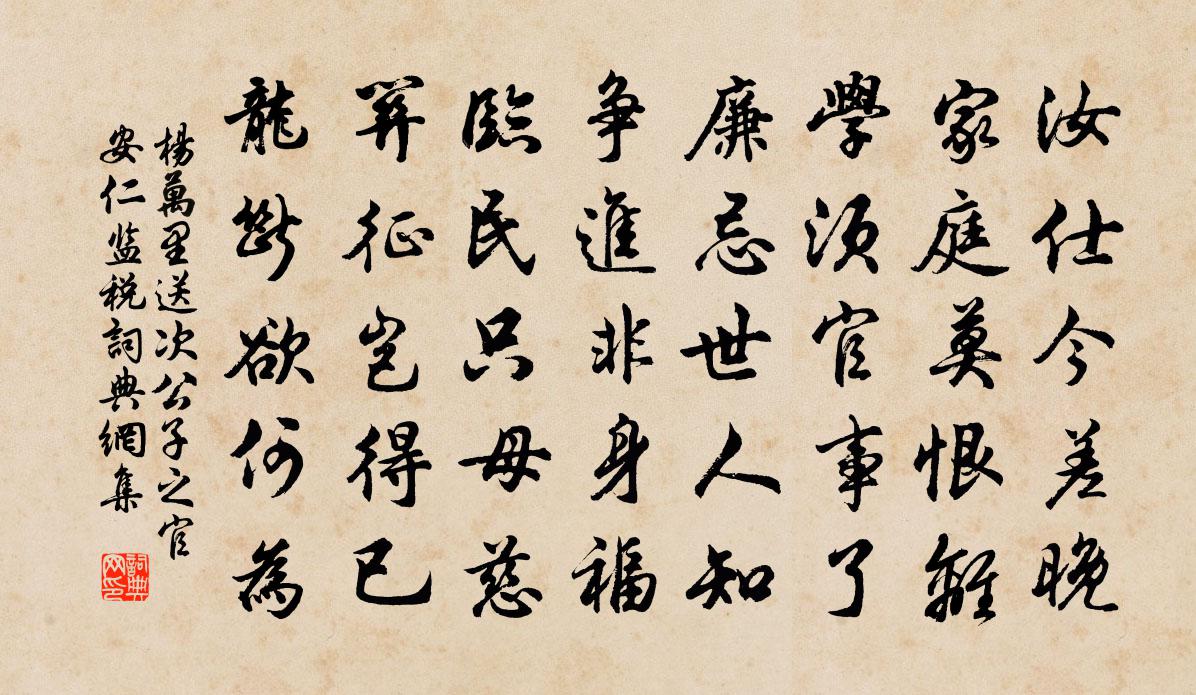 汝仕今差晚
家庭莫恨離
學須官事了
廉忌世人知
争進非身福
臨民只母慈
關征豈得已
龍斷欲何為
楊萬里送次公子之官
安仁监税詞典網集
詞典网印